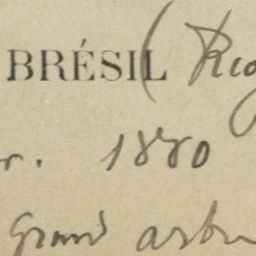 BRÉSIL (Rio
r. 1880
Grand arbr